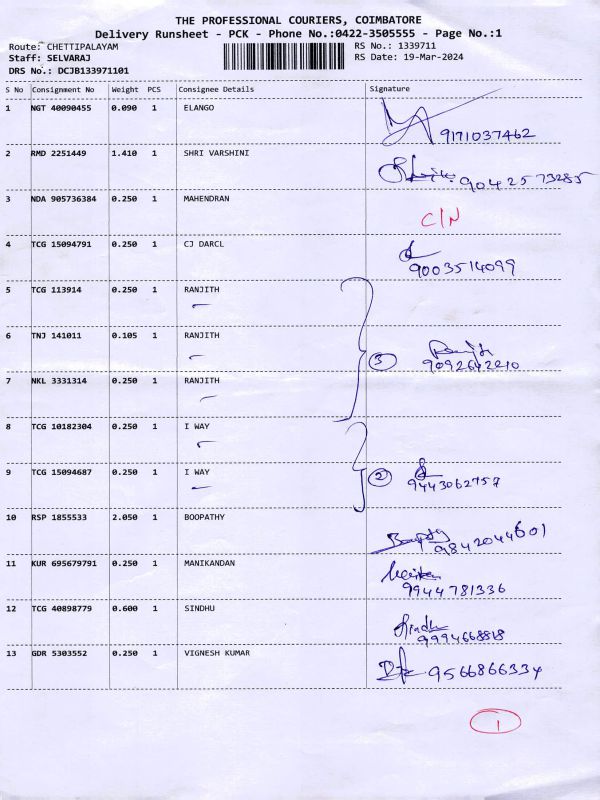 THE PROFESSIONAL COURIERS, COIMBATORE
Delivery Runsheet - PCK - Phone No.:0422-3505555 - Page No.:1
Route: CHETTIPALAYAM RS No.: 1339711
Staff: SELVARAJ RS Date: 19-Mar-2024
DRS No.: DCJB133971101
S No Consignment No Weight PCS Consignee Details Signature
1 NGT 40090455 0.090 1 ELANGO
9171037462
2 RMD 2251449 1.410 1 SHRI VARSHINI
9042573285
3 NDA 905736384 0.250 1 MAHENDRAN
C/N
4 TCG 15094791 0.250 1 CJ DARCL
9003514099
5 TCG 113914 0.250 1 RANJITH
6 TNJ 141011 0.105 1 RANJITH
3 9092642210
7 NKL 3331314 0.250 1 RANJITH
8 TCG 10182304 0.250 1 I WAY
9 TCG 15094687 0.250 1 I WAY
2 9443062757
10 RSP 1855533 2.050 1 BOOPATHY
9842044601
11 KUR 695679791 0.250 1 MANIKANDAN
9944781336
12 TCG 40898779 0.600 1 SINDHU
Sindhu
9994668818
13 GDR 5303552 0.250 1 VIGNESH KUMAR
9566866334
1